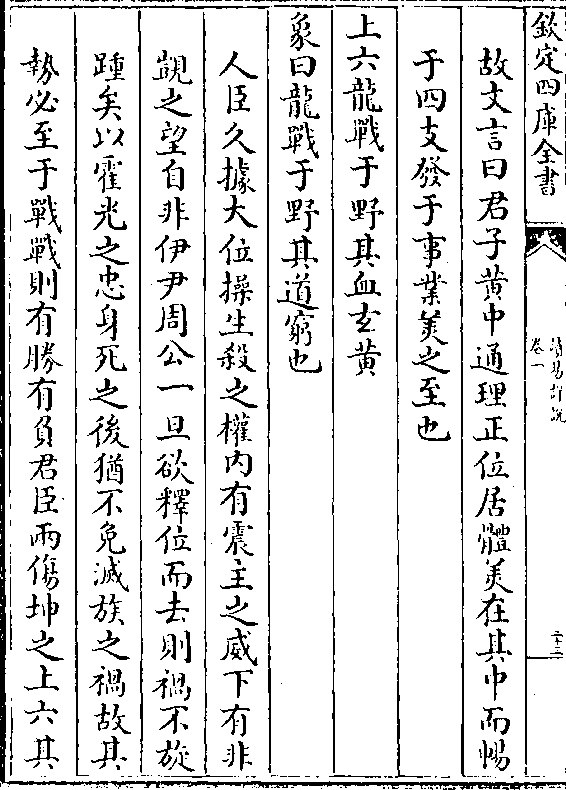 欽定四庫全書
讀易詳說
卷一
故文言曰君子黄中通理正位居體美在其中而暢
于四支發于事業美之至也
上六龍戰于野其血玄黄
象曰龍戰于野其道窮也
人臣久據大位操生殺之權内有震主之威下有非
覬之望自非伊尹周公一旦欲釋位而去則禍不旋
踵矣以霍光之忠身死之後猶不免滅族之禍故其
勢必至于戰戰則有勝有負君臣兩傷坤之上六其